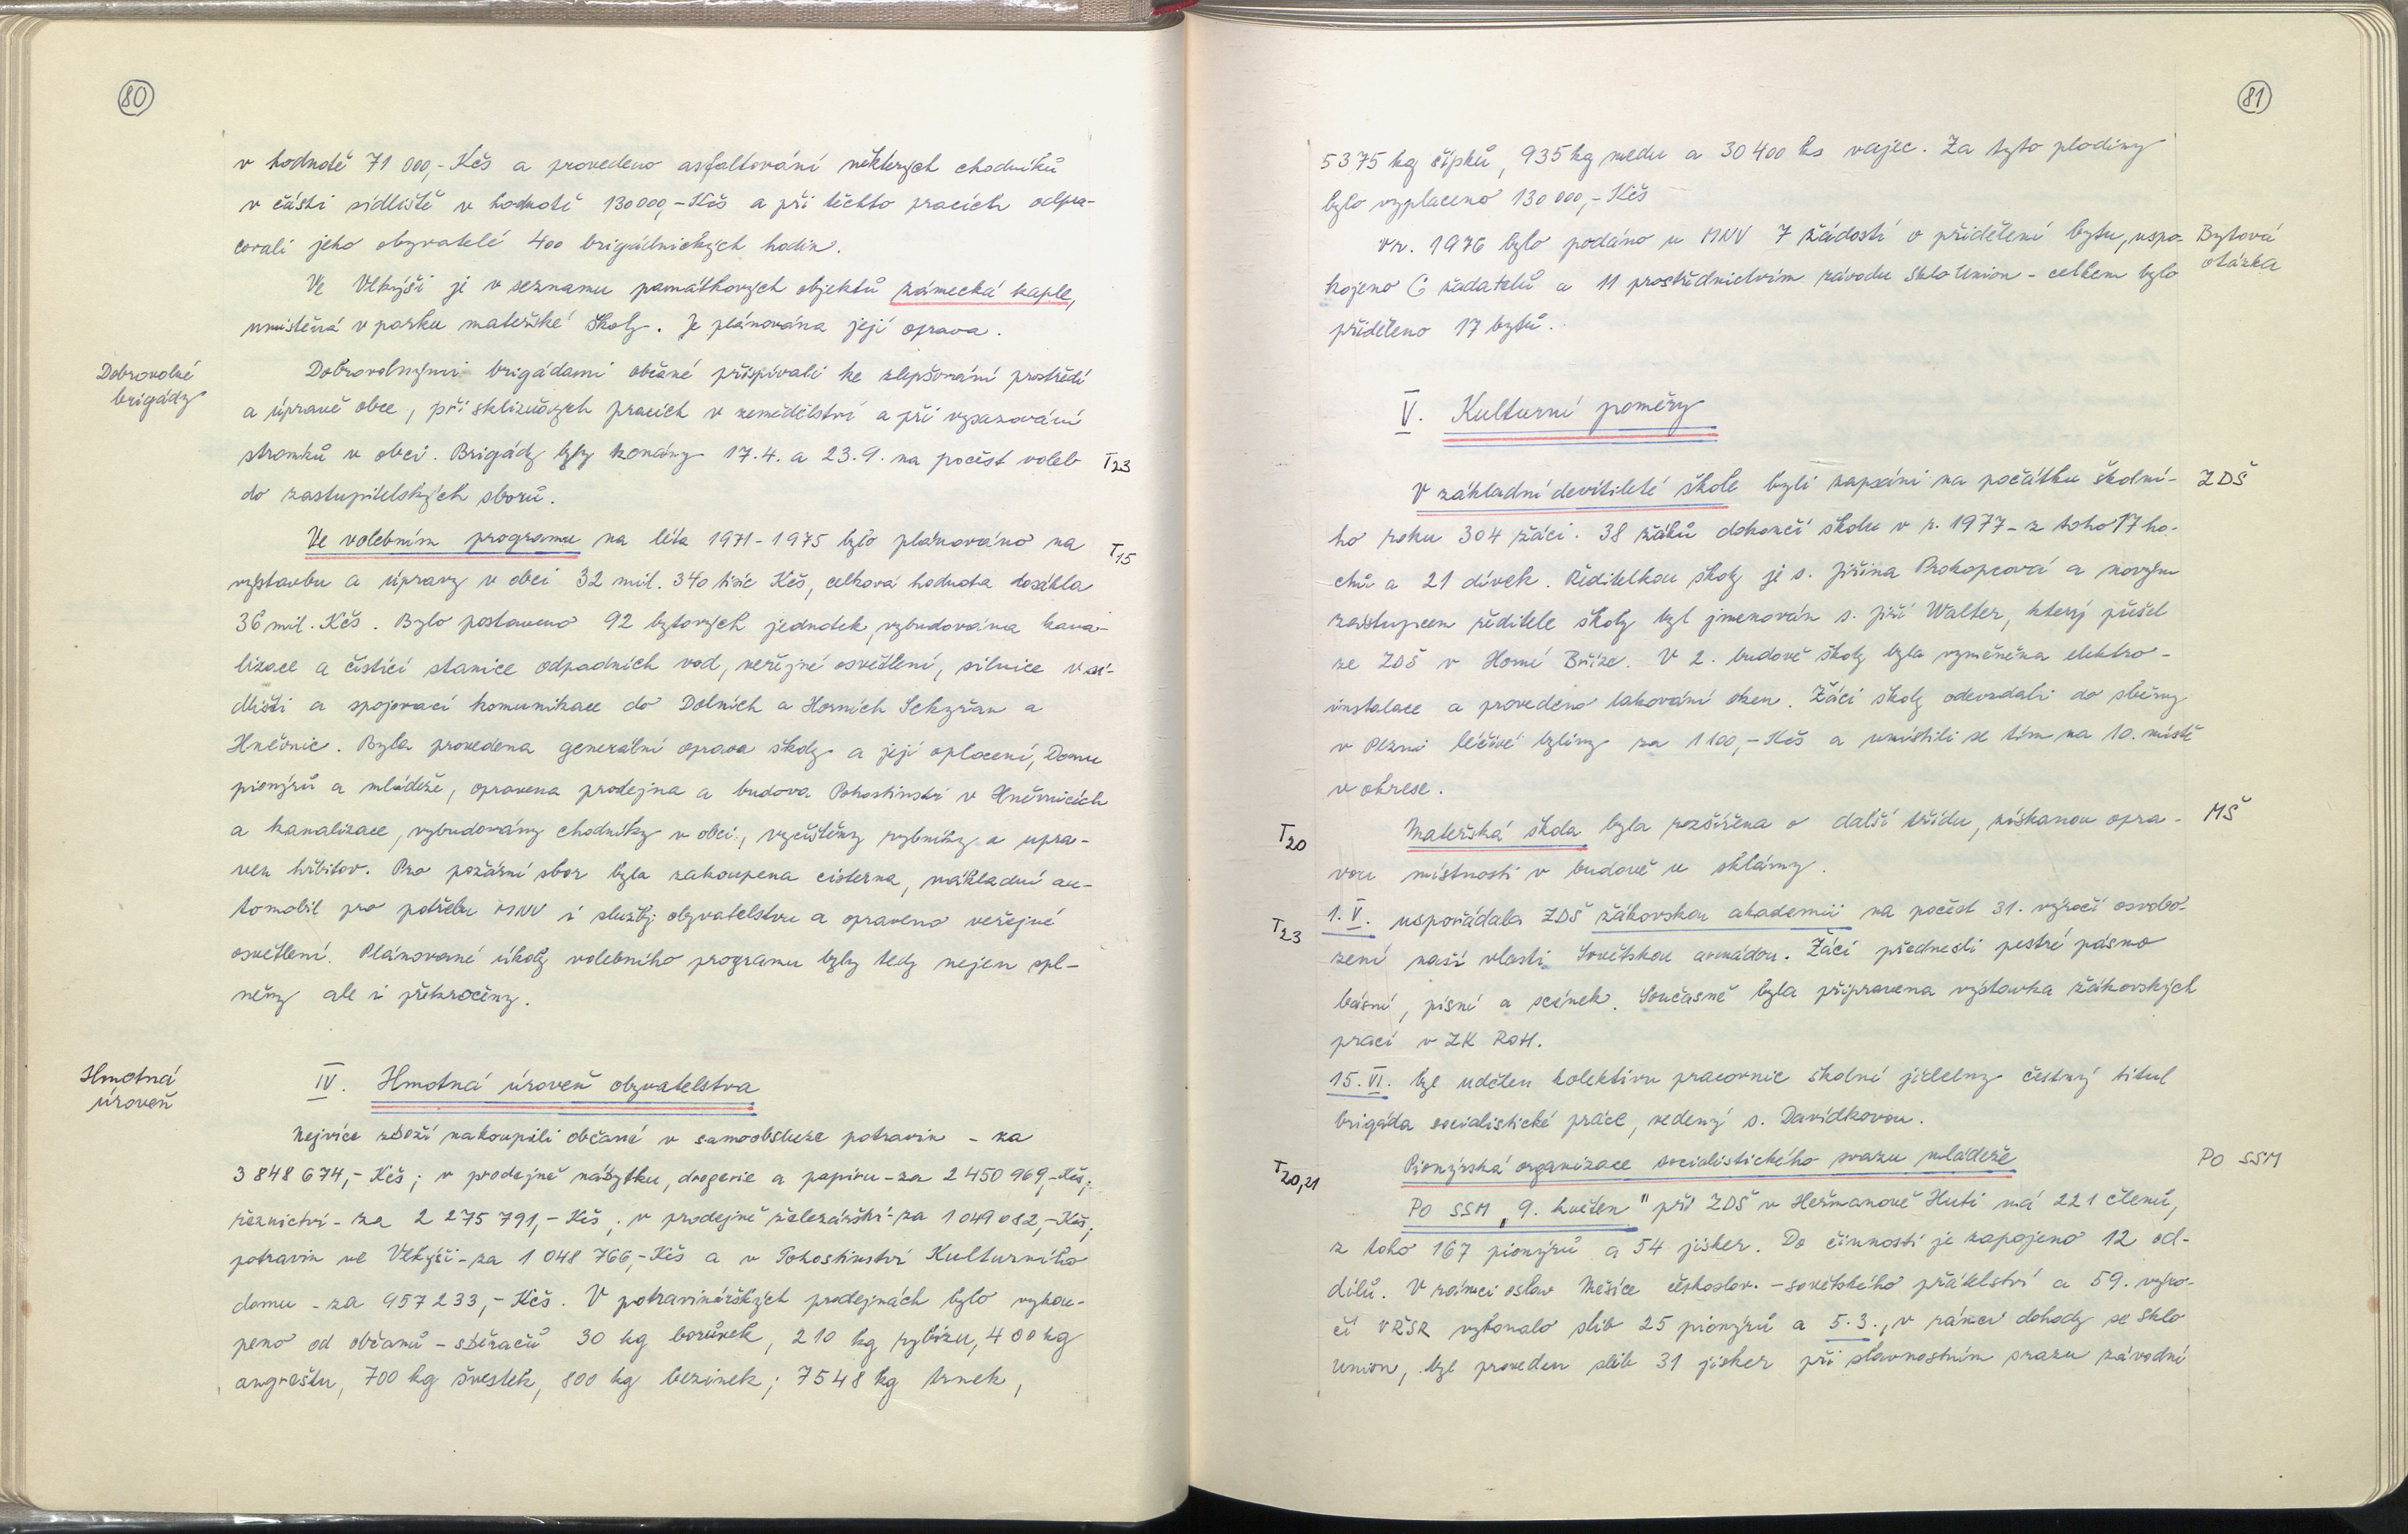 80
v hodnotě 71 000,- Kčs a provedeno asfaltování některých chodníků
v části sídliště v hodnotě 130 000,- Kčs a při těchto pracích odpra-
covali jeho obyvatelé 400 brigádnických hodin.
Ve Vlkýši je v seznamu památkových objektů zámecká kaple,
umístěná v parku mateřské školy. Je plánována její oprava.
Dobrovolné
brigády
Dobrovolnými brigádami občané přispívali ke zlepšování prostředí
a úpravě obce, při sklizňových pracích v zemědělství a při vysazování
stromků v obci. Brigády byly konány 17.4. a 23.9. na počest voleb T23
do zastupitelských sborů.
Ve volebním programu na léta 1971-1975 bylo plánováno na T15
výstavbu a úpravy v obci 32 mil. 340 tisíc Kčs, celková hodnota dosáhla
36 mil. Kčs. Bylo postaveno 92 bytových jednotek, vybudována kana-
lizace a čistící stanice odpadních vod, veřejné osvětlení, silnice v sí-
dlišti a spojovací komunikace do Dolních a Horních Sekyřan a
Hněvnic. Byla provedena generální oprava školy a její oplocení, Domu
pionýrů a mládeže, opravena prodejna a budova Pohostinství v Hněvnicích
a kanalizace, vybudovány chodníky v obci, vyčištěny rybníky a upra-
ven hřbitov. Pro požární sbor byla zakoupena cisterna, nákladní au-
tomobil pro potřebu MNV i služby obyvatelstvu a opraveno veřejné
osvětlení. Plánované úkoly volebního programu byly tedy nejen spl-
něny ale i překročeny.
Hmotná
úroveň
IV. Hmotná úroveň obyvatelstva
Nejvíce zboží nakoupili občané v samoobsluze potravin - za
3 848 674,- Kčs; v prodejně nábytku, drogerie a papíru - za 2 450 969,- Kčs;
řeznictví - za 2 275 791,- Kčs; v prodejně železářství - za 1 049 082,- Kčs;
potravin ve Vlkýši - za 1 048 766,- Kčs a v Pohostinství Kulturního
domu - za 957 233,- Kčs. V potravinářských prodejnách bylo vykou-
peno od občanů - sběračů 30 kg borůvek, 210 kg rybízu, 400 kg
angreštu, 700 kg švestek, 800 kg bezinek; 7548 kg trnek,
81
5375 kg šípků, 935 kg medu a 30 400 ks vajec. Za tyto plodiny
bylo vyplaceno 130 000,- Kčs
V r. 1976 bylo podáno u MNV 7 žádostí o přidělení bytu, uspo-
kojeno 6 žadatelů a 11 prostřednictvím závodu Sklo Union - celkem bylo
přiděleno 17 bytů.
Bytová
otázka
V. Kulturní poměry
V základní devítileté škole byli zapsáni na počátku školní- ZDŠ
ho roku 304 žáci. 38 žáků dokončí školu v r. 1977 - z toho 17 ho-
chů a 21 dívek. Ředitelkou školy je s. Jiřina Prokopcová a novým
zástupcem ředitele školy byl jmenován s. Jiří Walter, který přešel
ze ZDŠ v Horní Bříze. V 2. budově školy byla vyměněna elektro-
instalace a provedeno lakování oken. Žáci školy odevzdali do sběrny
v Plzni léčivé byliny za 1100,- Kčs a umístili se tím na 10. místě
v okrese.
T20 Mateřská škola byla rozšířena o další třídu, získanou opra- MŠ
vou místnosti v budově u sklárny.
T23 1. V. uspořádala ZDŠ žákovskou akademii na počest 31. výročí osvobo-
zení naší vlasti Sovětskou armádou. Žáci přednesli pestré pásmo
básní, písní a scének. Současně byla připravena výstavka žákovských
prací v ZK ROH.
15. VI. byl udělen kolektivu pracovnic školní jídelny čestný titul
brigáda socialistické práce, vedený s. Davídkovou.
T20,21 Pionýrská organizace socialistického svazu mládeže PO SSM
PO SSM „9. květen" při ZDŠ v Heřmanově Huti má 221 členů,
z toho 167 pionýrů a 54 jisker. Do činnosti je zapojeno 12 od-
dílů. V rámci oslav Měsíce českoslov. - sovětského přátelství a 59. výro-
čí VŘSR vykonalo slib 25 pionýrů a 5.3., v rámci dohody se Sklo
Union, byl proveden slib 31 jisker při slavnostním srazu závodní